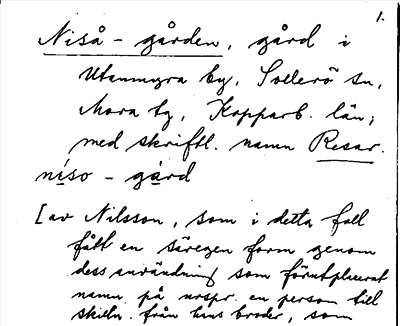 1.
Niså-gården, gård i
Utanmyra by, Sollerö sn,
Mora tg, Kopparb. län;
med skriftl. namn Resar.
níso-gård
[av Nilsson, som i detta fall
fått en säregen form genom
dess användning som förutplacerat
namn på urspr. en person till
skilln. från hans broder, som